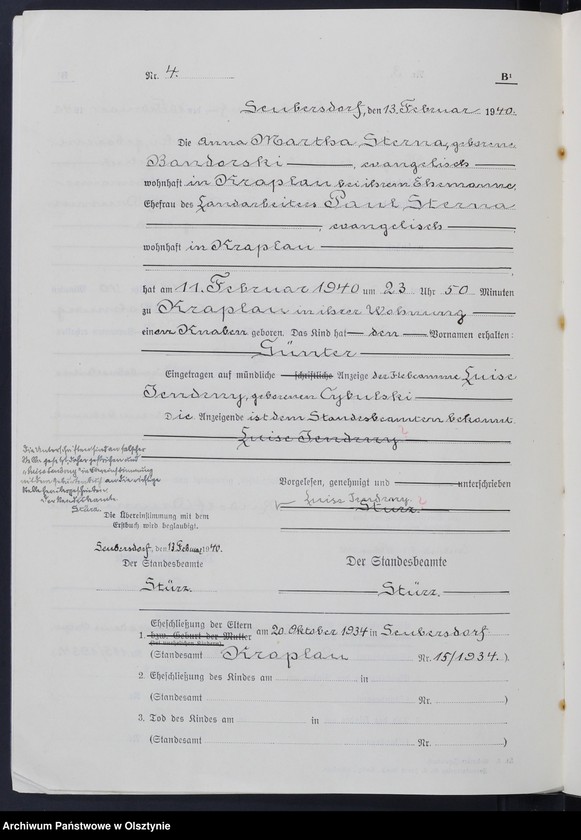 Nr. 4.
B1
Seubersdorf, den 13. Februar 1940.
Die Anna Martha Sterna, geborene
Bandorski, evangelisch
wohnhaft in Kraplau bei ihrem Ehemanne,
Ehefrau des Landarbeiters Paul Sterna
, evangelisch
wohnhaft in Kraplau
hat am 11. Februar 1940 um 23 Uhr 50 Minuten
zu Kraplau in ihrer Wohnung
einen Knaben geboren. Das Kind hat den Vornamen erhalten:
Günter
Eingetragen auf mündliche schriftliche Anzeige der Hebamme Luise
Jendrny, geborenen Cybulski
Die Anzeigende ist dem Standesbeamten bekannt.
Luise Jendrny
Die Unterschriften sind an falscher
Stelle gesetzt, daher gestrichen und
in dem an die richtige
Stelle
Der Standesbeamte
Stürz.
Vorgelesen, genehmigt und unterschrieben
Luise Jendrny
Stürz.
Die Übereinstimmung mit dem
Erstbuch wird beglaubigt.
Seubersdorf, den 13. Februar 1940.
Der Standesbeamte
Stürz.
Der Standesbeamte
Stürz.
1. Eheschließung der Eltern am 20. Oktober 1934 in Seubersdorf
bzw. Geburt der Mutter
(Standesamt Kraplau Nr. 15/1934.)
2. Eheschließung des Kindes am in
(Standesamt Nr. )
3. Tod des Kindes am in
(Standesamt Nr. )
Archiwum Państwowe w Olsztynie